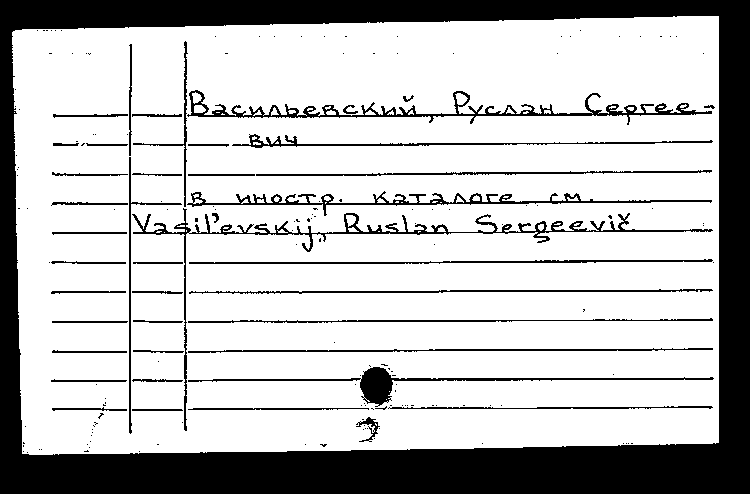 Васильевский, Руслан Сергее-
вич
в иностр. каталоге см.
Vasil'evskij, Ruslan Sergeevič